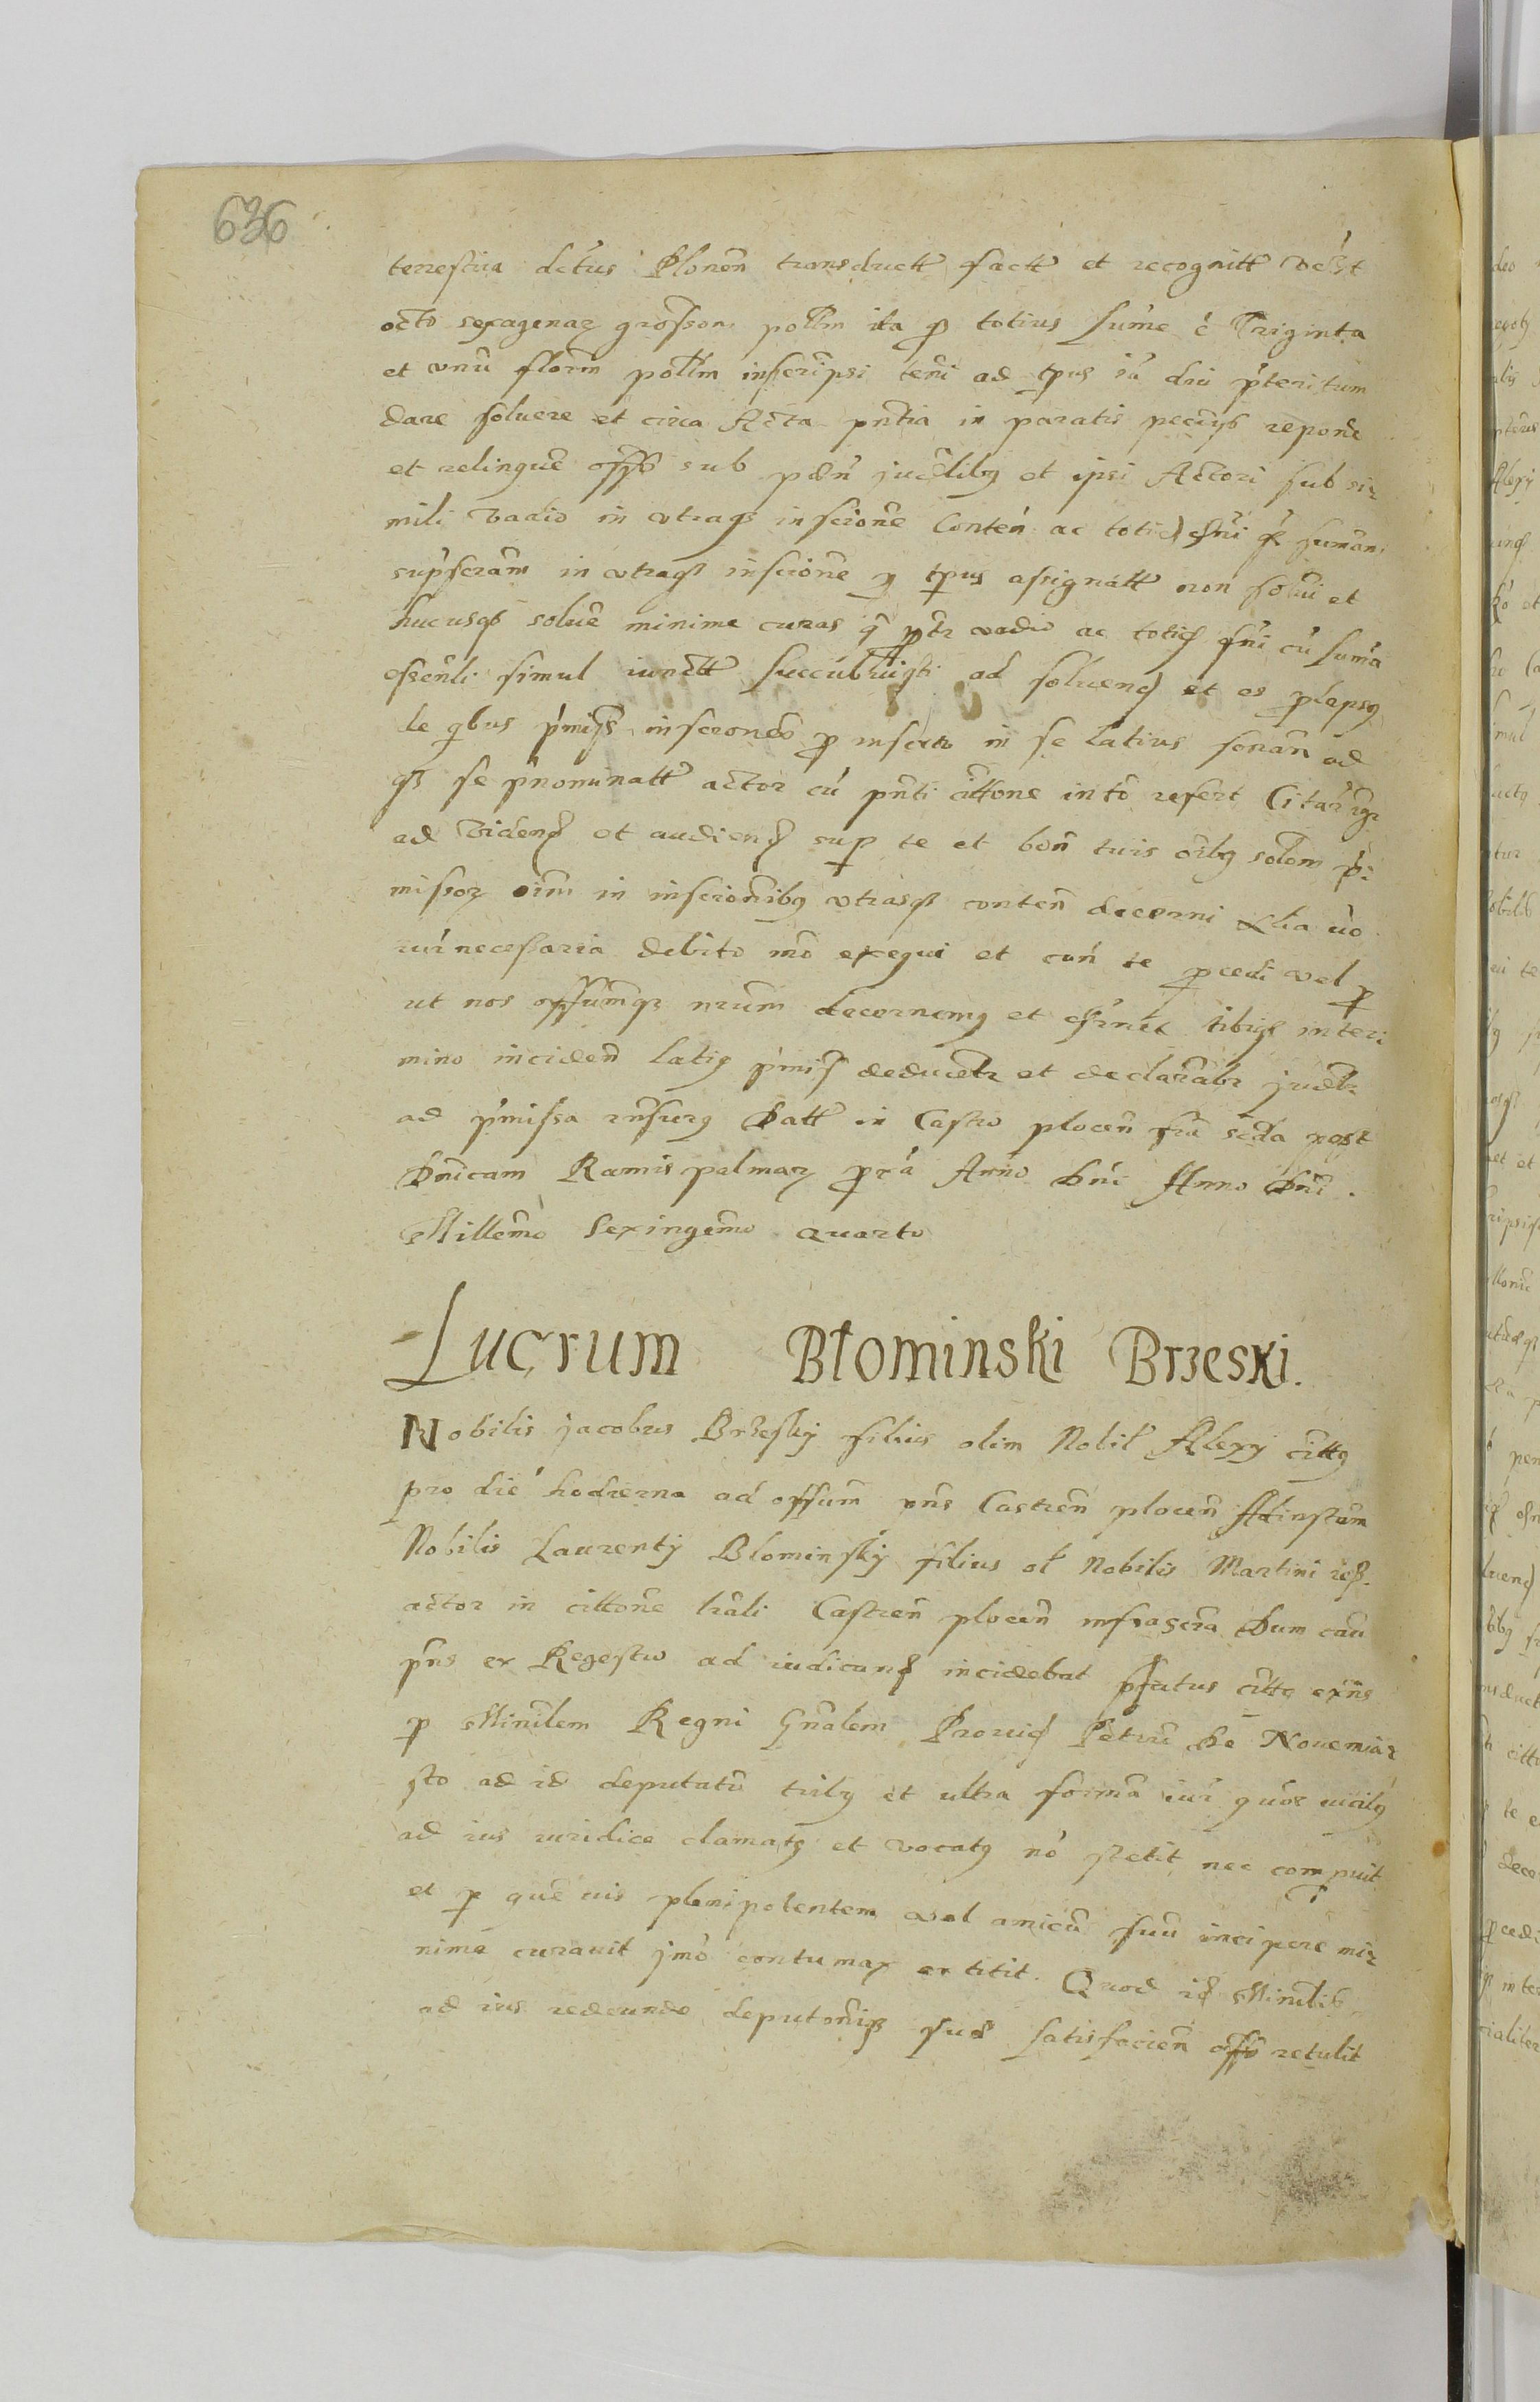 636
terrestria dctus Plonen transductt factt et recognitt
octo sexagenar grossor pollm ita p totius sume Triginta
et vnu florin pollm inscripsi teni ad tpus ia diu pteritum
dare soluere et circa Acta pntia in paratis pecuys repone
et relinque offs sub paen jucdlibg et ipsi Actori sub si
mili vadio in vtraqs inscrione Conten ac totid suman
supscram in vtraqs inscrione tpus asignatt non solui et
hucusqs solue minime curas vadio ac cu suma
essenli simul iunctt succubuisti ad soluend et es plapsg
de qbus pmiss inscrondo p inserto in se latius sonan ad
qs se pnominatt actor cu pnti cittone into refert Citar
ad vidend et audiend sup te et bon tuis oibg solem p
missor oim in inscrionibg vtrasqs conten decerni Alia uo
iur necessaria debito mo exequi et con te pcedi vel p
ut nos offumqs nrum decernemg et tibiqs in teri
mino inciden latig pmiss deducetr et declarabr judlr
ad pmissa rnsurg Datt in Castro plocen fria scda post
Dnicam Ramis palmar pxa Anno Dni Anno Dni.
Millemo Sexingemo quarto
Lucrum Błominski Brzeski.
Nobilis jacobus Brzesky filius olim Nobil Alexy cittg
pro die hodierna ad offum pns Castren plocen Adinstam
Nobilis Laurenty Blominsky filius ol Nobilis Martini
actor in cittone lrali Castren plocen infrascra Dum cau
pns ex Regestro ad iudicand incidebat pfatus cittg exns
p Minilem Regni Gnalem Prouid Petru De Nouemia
sto ad id deputatu trilg et ultra forma iur quor uicilg
ad ius iuridice clamatg et vocatg no stetit nec compuit
et p que uis plenipotentem vel amicu suu incipere mi
nime curauit jmo contumax extitit. Quod id Minilis
ad ius redeundo deputonis sue satisfacien offo retulit